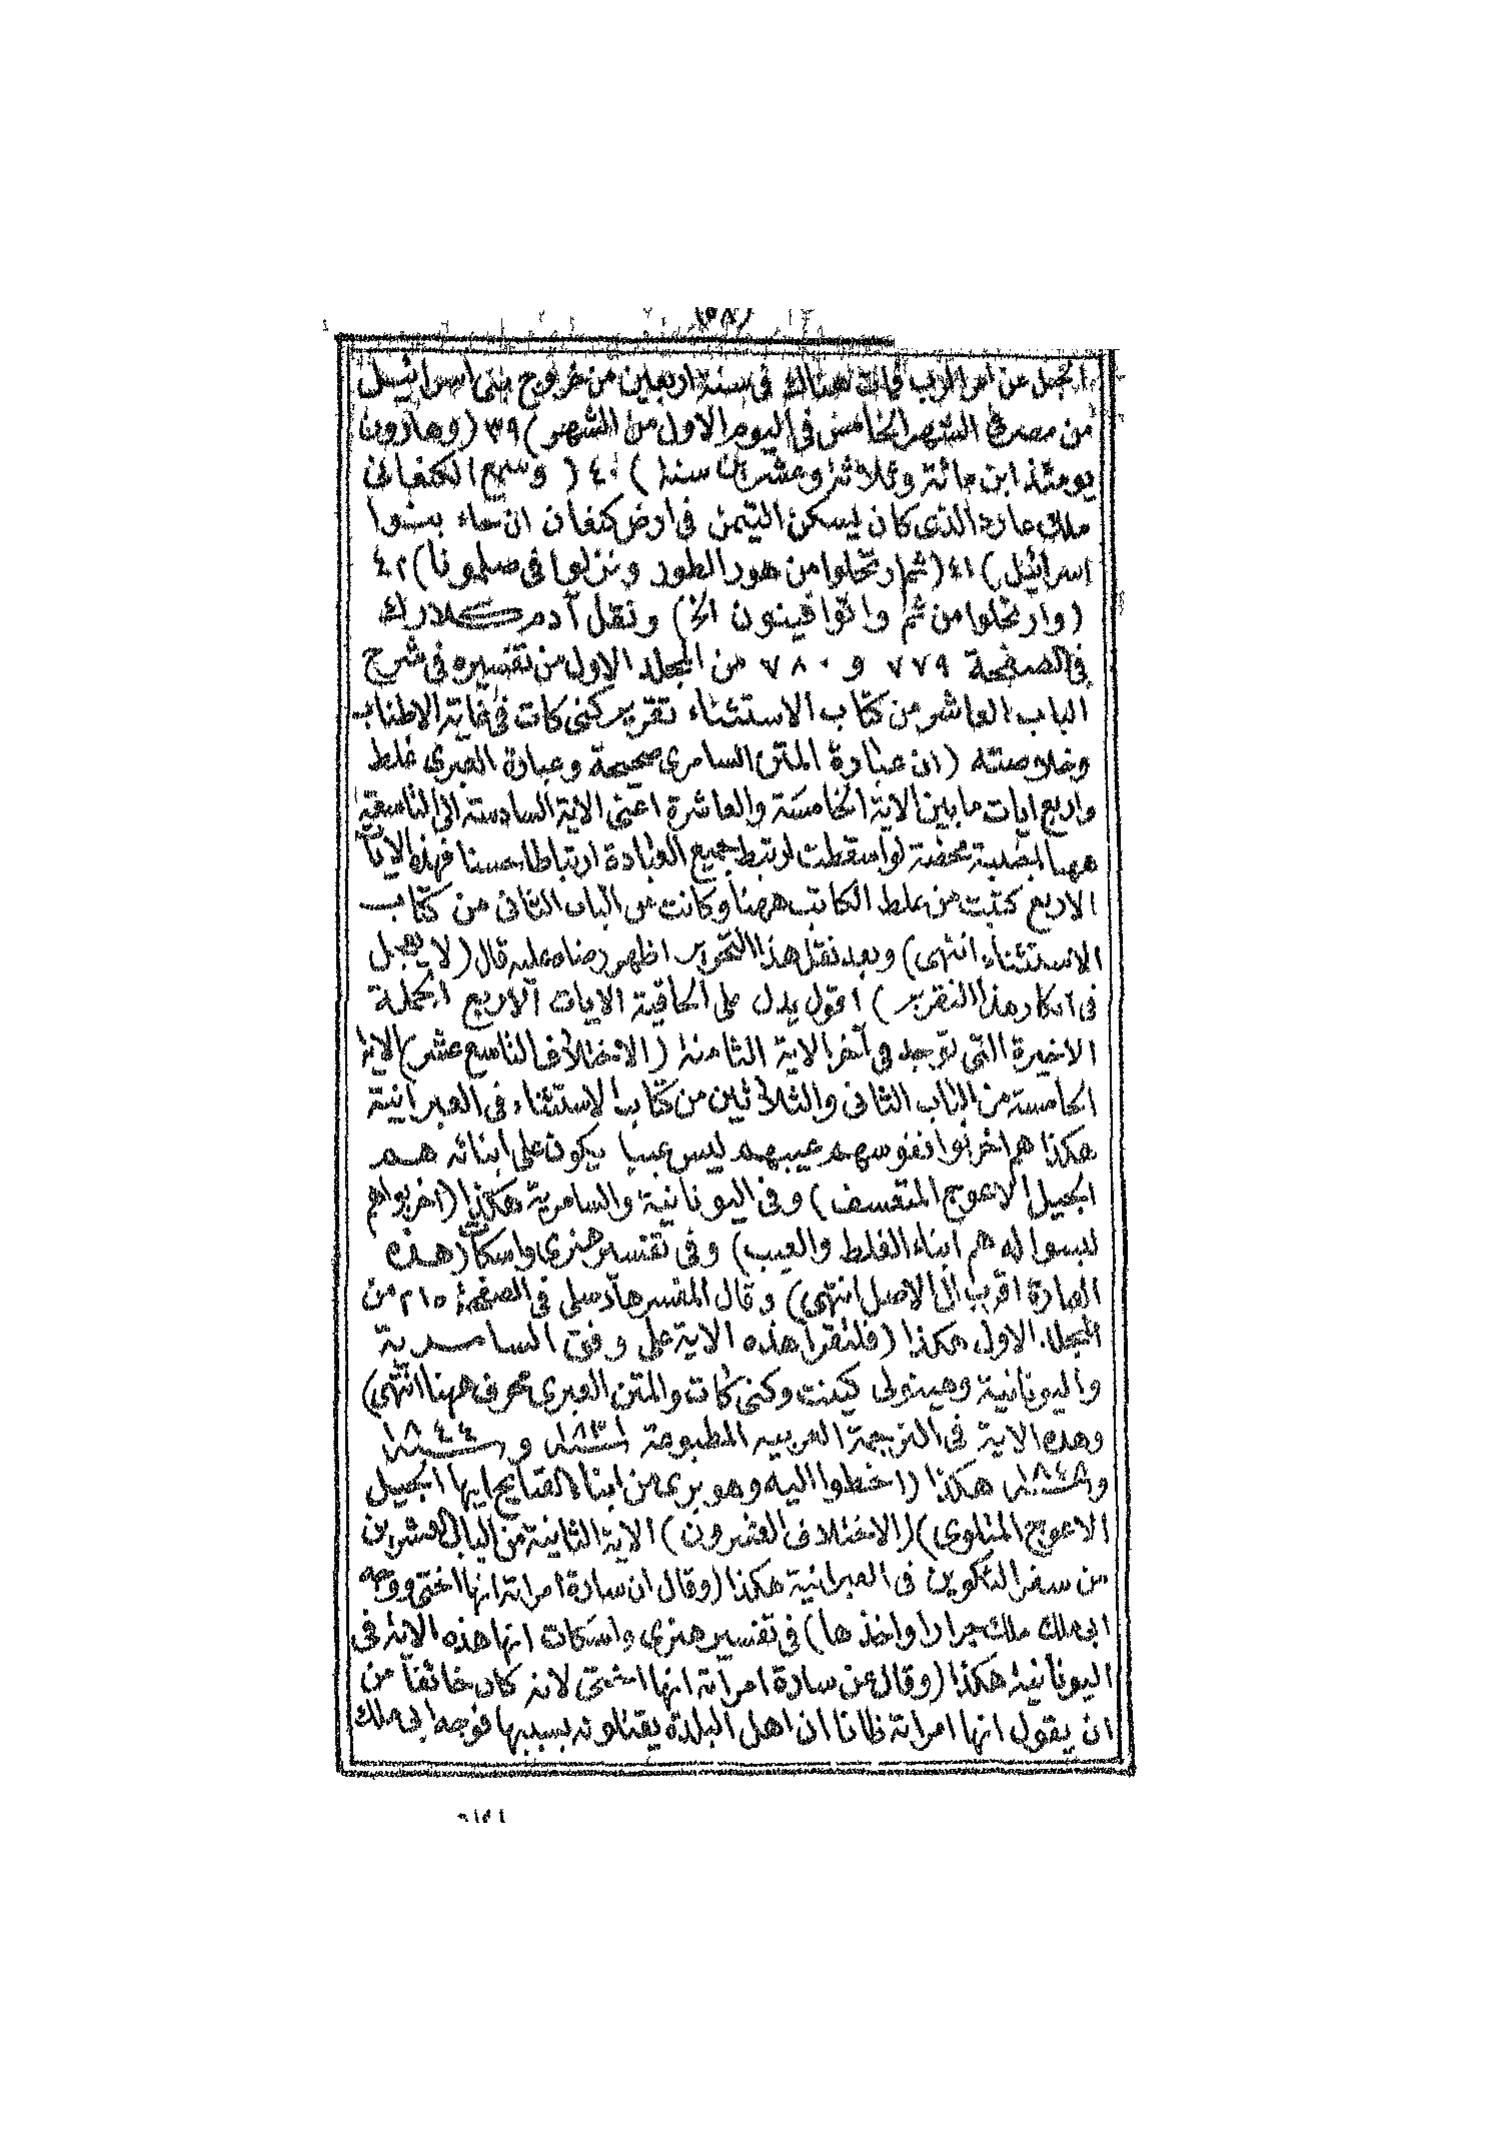 الجبل عن امر الرب فمات هناك فى سنة اربعين من خروج بنى اسرائيل
من مصر فى الشهر الخامس فى اليوم الاول من الشهر) ٣٩ (وهارون
يومئذ ابن مائة وثلاثة وعشرين سنة) ٤٠ (وسمع الكنعانى
ملك عاد الذى كان يسكن التيمن فى ارض كنعان ان جاء بنوا
اسرائيل) ٤١ (ثم ارتحلوا من هور الطور ونزلوا فى صلمونا) ٤٢
(وارتحلوا من ثم واتوا فينون الخ) ونقل آدم كلارك
فى الصفحة ٧٧٩ و ٧٨٠ من المجلد الاول من تفسيره فى شرح
الباب العاشر من كتاب الاستثناء تقرير كنى كات فى غاية الاطناب
وخلاصته (ان عبارة المتن السامرى صحيحة وعبارة العبرى غلط
واربع ايات ما بين الاية الخامسة والعاشرة اعنى الاية السادسة الى التاسعة
ههنا اجنبية محضة لو اسقطت لارتبط جميع العبارة ارتباطا حسنا فهذه الايات
الاربع كتبت من غلط الكاتب ههنا وكانت من الباب الثانى من كتاب
الاستثناء انتهى) وبعد نقل هذا التقرير اظهر رضاه عليه قال (لا يعجل
فى انكار هذا التقرير) اقول يدل على الحاقية الايات الاربع الجملة
الاخيرة التى توجد فى آخر الاية الثامنة (الاختلاف التاسع عشر) الاية
الخامسة من الباب الثانى والثلاثين من كتاب الاستثناء فى العبرانية
هكذا هم اخربوا نفوسهم عيبهم ليس عيبا يكون على ابنائه هم
الجيل الاعوج المتعسف) وفى اليونانية والسامرية هكذا (اخربوا هم
ليسوا له هم ابناء الغلط والعيب) وفى تفسير هنرى واسكات (هذه
العبارة اقرب الى الاصل انتهى) وقال المفسر هارسلى فى الصفحة ٢١٥ من
المجلد الاول هكذا (فلتقرأ هذه الاية على وفق السامرية
واليونانية وهيبولى كينت وكنى كات والمتن العبرى محرف ههنا انتهى)
وهذه الاية فى الترجمة العربيه المطبوعة ١٨٣١ و ١٨٤٤
و ١٨٤٨ هكذا (اخطوا اليه وهو برى من ابناء القبايح ايها الجيل
الاعوج المتلوى) (الاختلاف العشرون) الاية الثانية من الباب العشرين
من سفر التكوين فى العبرانية هكذا (وقال ان سارة امراته انها اختى ووجه
ابى ملك ملك جرارا واخذها) فى تفسير هنرى واسكات انها هذه الاية فى
اليونانية هكذا (وقال عن سارة امراته انها اختى لانه كان خائفا من
ان يقول انها امراته ظانا ان اهل البلدة يقتلونه بسببها فوجه ابى ملك